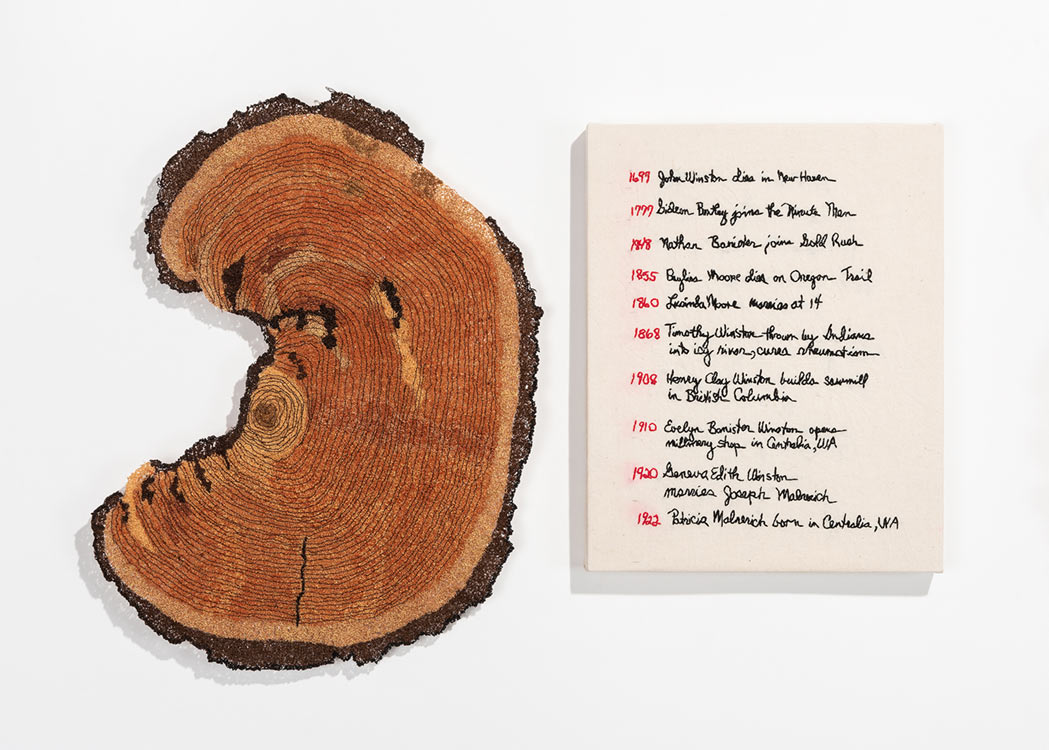 1699 John Winston dies in New Haven
1777 Gideon Bartley joins the Minute Men
1848 Nathan Banister joins Gold Rush
1855 Baylius Moore dies on Oregon Trail
1860 Lucinda Moore marries at 14
1868 Timothy Winston thrown by Indians
into icy river, cures rheumatism
1908 Henry Clay Winston builds sawmill
in British Columbia
1910 Evelyn Banister Winston opens
millinery shop in Centralia, WA
1920 Geneva Edith Winston
marries Joseph Malnerich
1922 Patricia Malnerich born in Centralia, WA